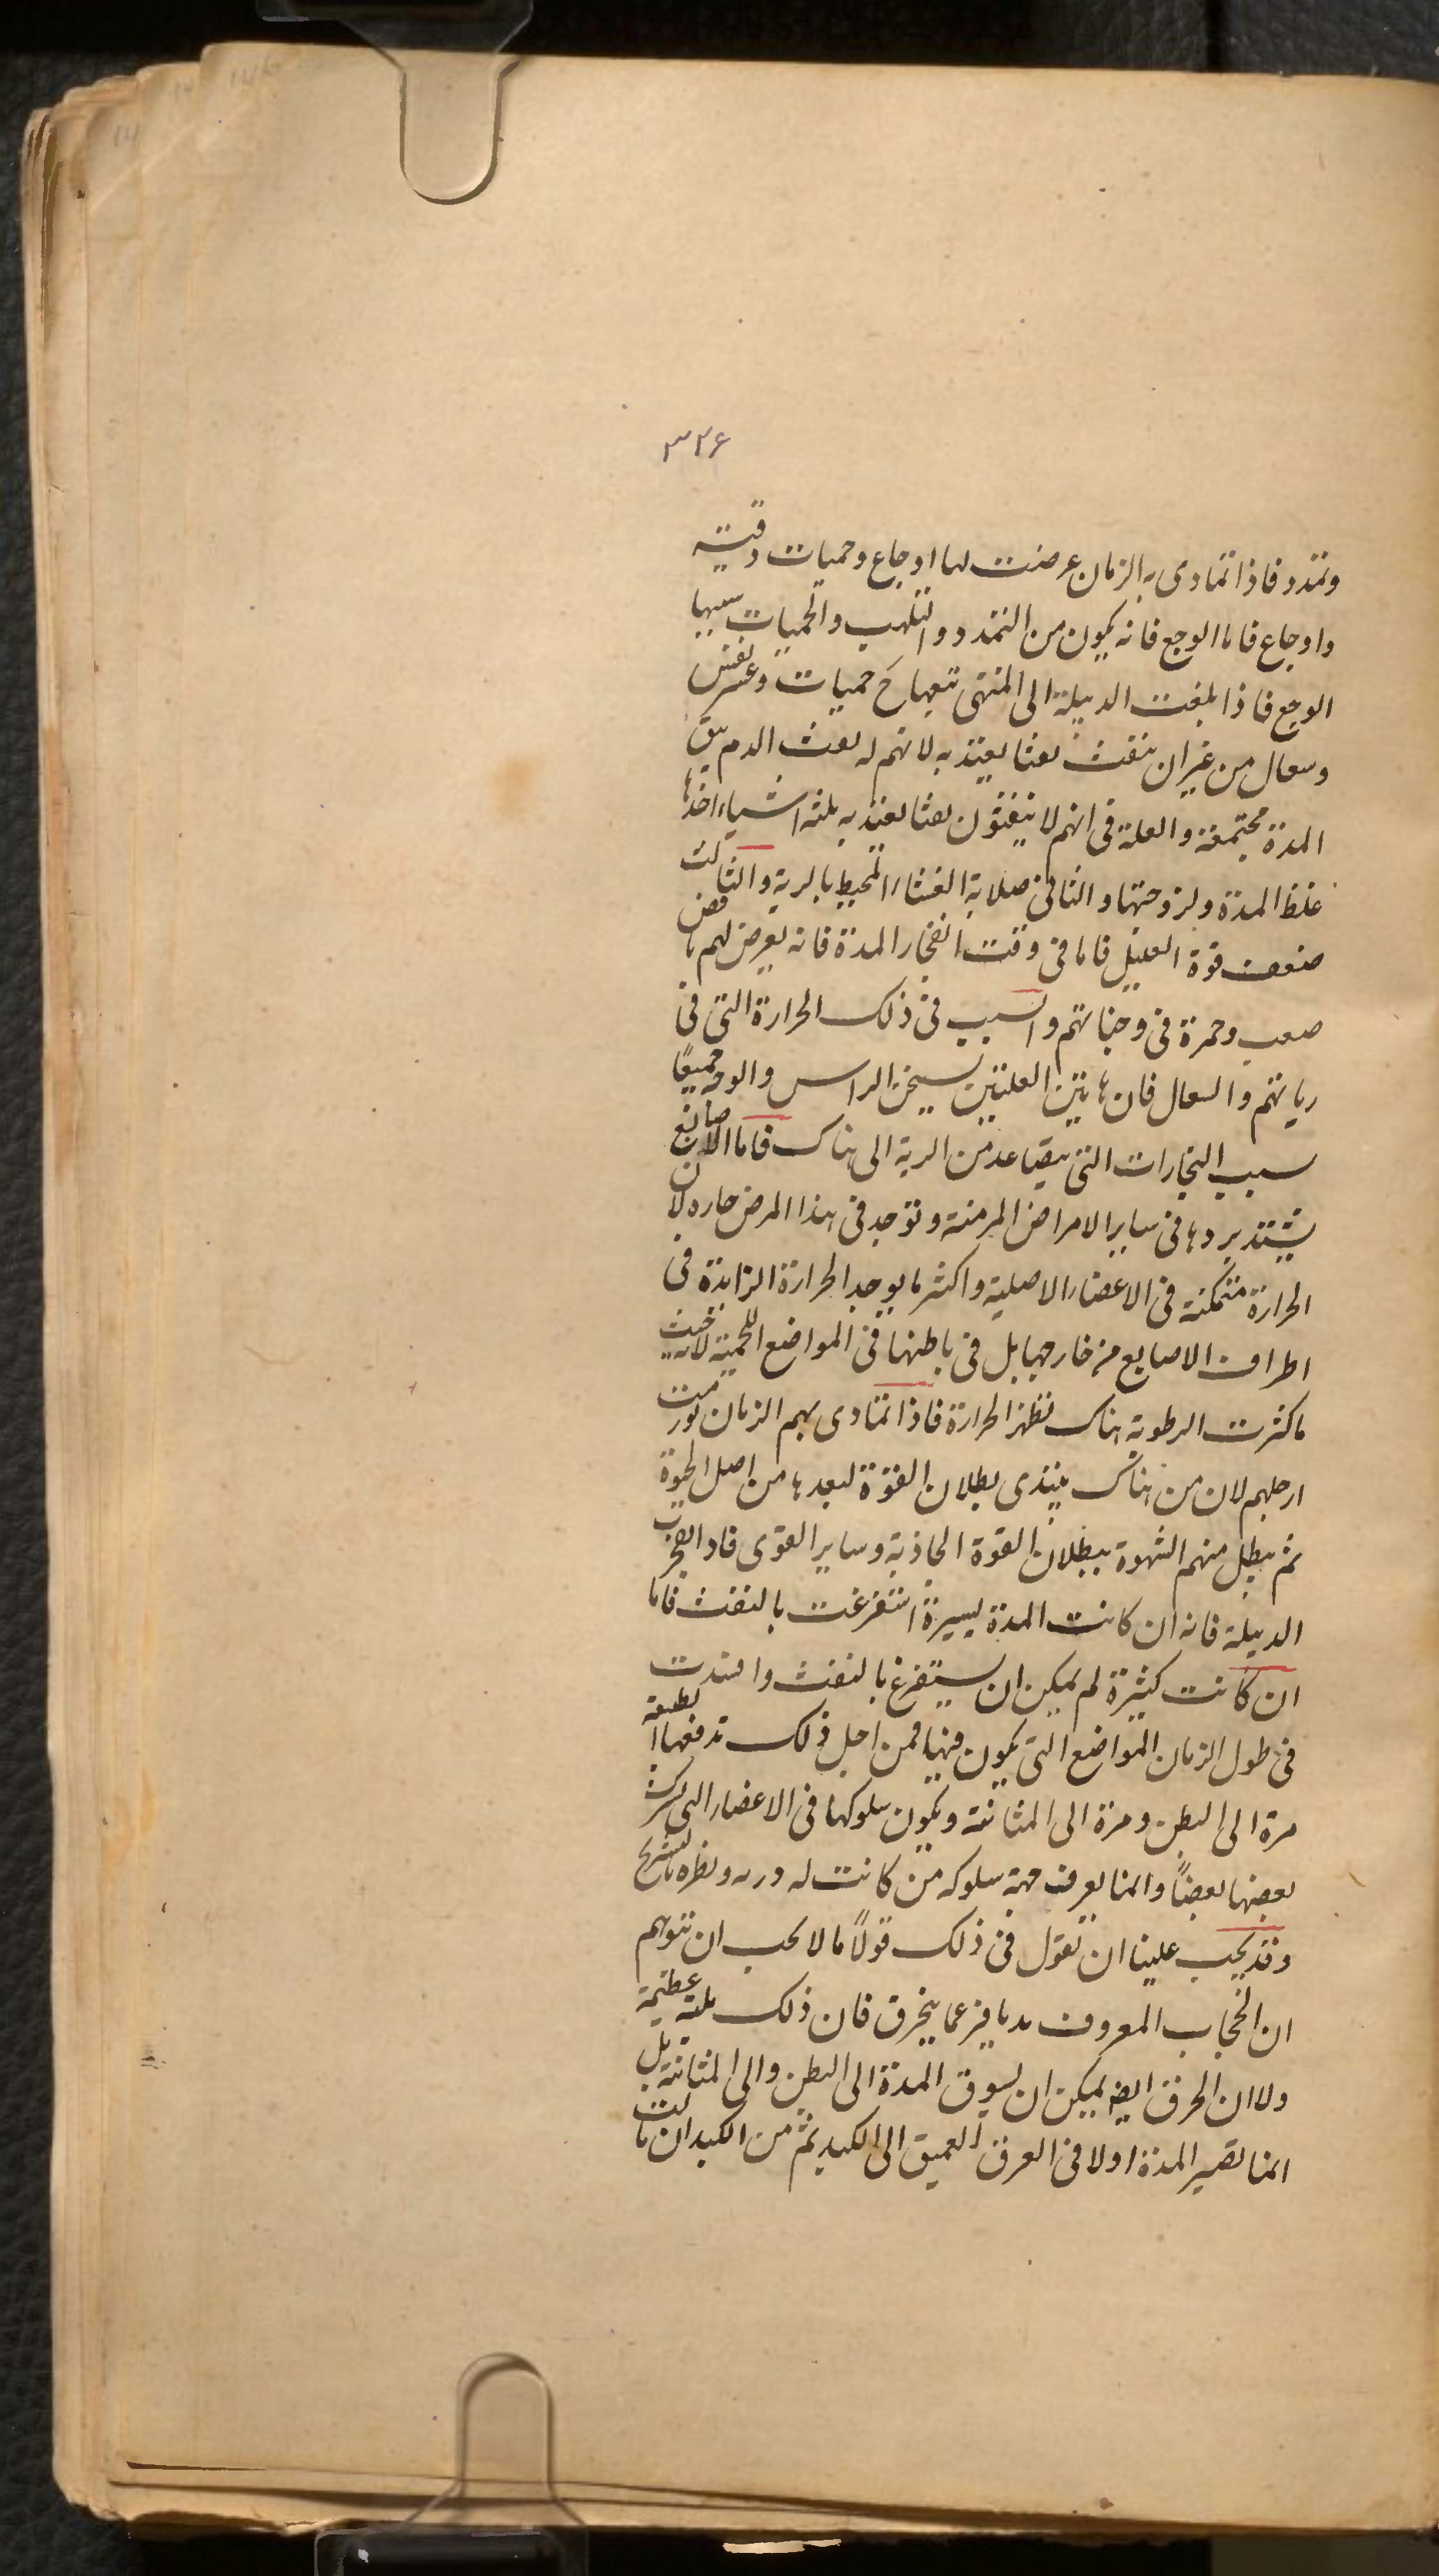 ٣٢۶
وتمدد فاذا تمادى به الزمان عرضت لها اوجاع وحميات دقيه
واوجاع فاما الوجع فانه يكون من التمدد والتلهب والحميات سببها
الوجع فاذا بلغت الدبيلة الى المنتهى تتبعها حميات وعسر نفس
وسعال من غير ان ينفث نفثا يعتد به لانهم له نعث الدم يبق
المدة مجتمعة والعلة فى انهم لا ينفثون نفثا يعتد به ثلثه اشياء احدها
غلظ المدة ولزوجتها والثانى صلابة الغشاء المحيط بالرية والثالث
ضعف قوة العليل فاما فى وقت انفجار المدة فانه يعرض لهم نافض
صعب وحمرة فى وجناتهم والسبب فى ذلك الحرارة التى فى
رياتهم والسعال فان هاتين العلتين يسخن الراس والوجه جميعًا
سبب البخارات التى يتصاعد من الرية الى هناك فاما الاصابع
يشتد بردها فى ساير الامراض المزمنة وتوجد فى هذا المرض حاره لان
الحرارة متمكنة فى الاعضاء الاصلية واكثر ما يوجد الحرارة الزايدة فى
اطراف الاصابع من خارجها بل فى باطنها فى المواضع اللحمية لانه بحيث
ما كثرت الرطوبة هناك تظهر الحرارة فاذا تمادى بهم الزمان تورمت
ارجلهم لان من هناك يبتدى بطلان القوة لبعدها من اصل الحيوة
ثم يبطل منهم الشهوة ببطلان القوة الجاذبة وساير القوى فاذا انفجرت
الدبيلة فانه ان كانت المدة يسيرة استفرغت بالنفث فاما
ان كانت كثيرة لم يمكن ان يستفرغ بالنفث وافسدت
فى طول الزمان المواضع التى يكون فيها فمن اجل ذلك تدفعها الطبيعة
مرة الى البطن ومرة الى المثانة ويكون سلوكها فى الاعضاء التى يشرك
بعضها بعضًا وانما يعرف جهة سلوكه من كانت له دربه ونظره بالتشريح
وقد يجب علينا ان نقول فى ذلك قولًا ما لا يجب ان نتوهم
ان الحجاب المعروف بديافرغما ينخرق فان ذلك بلية عظيمة
ولا ان الخرق ايضا يمكن ان يسوق المدة الى البطن والى المثانة بل
انما تصير المدة اولا فى العرق العميق الى الكبد ثم من الكبد ان مالت